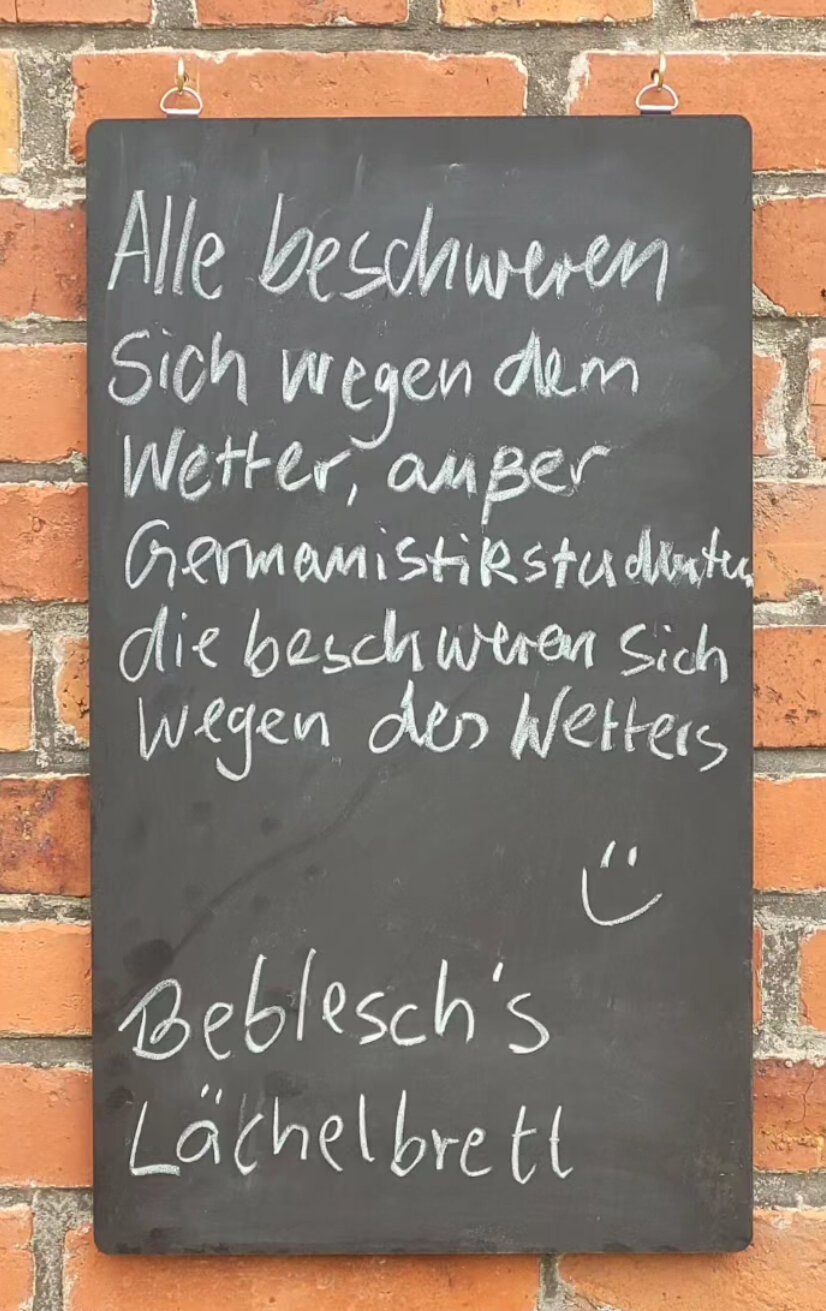 Alle beschweren
sich wegen dem
Wetter, außer
Germanistikstudenten
die beschweren sich
wegen des Wetters
Beblesch's
Lächelbrett